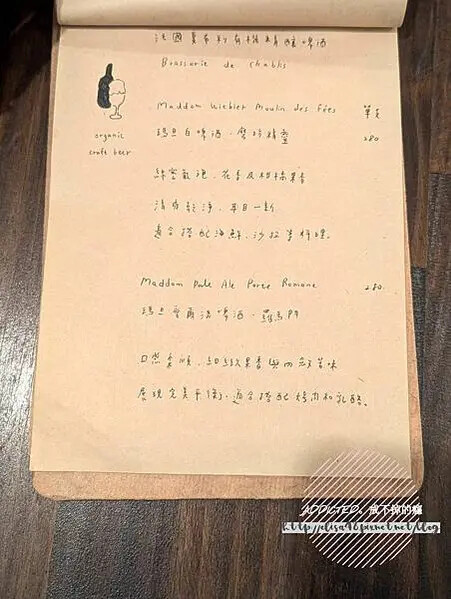 法國夏布利有機精釀啤酒
Brasserie de Chablis
organic
craft beer
Maddam Weebier Moulin des Fées 單支
瑪旦白啤酒．磨坊精靈 280
綿密氣泡、花香及柑橘果香
清爽乾淨、耳目一新
適合搭配海鮮、沙拉等料理。
Maddam Pale Ale Porte Romane 280
瑪旦愛爾淡啤酒．羅馬門
口感柔順、細緻果香與微苦味
展現完美平衡、適合搭配烤肉和乳酪。
ADDICTED. 戒不掉的癮
http://elisa98.pixnet.net/blog